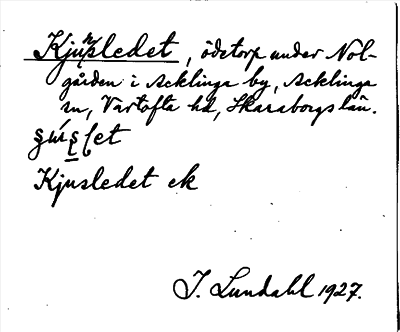 Kjusledet, ödetorp under Nol-
gården i Acklinga by, Acklinga
sn, Vartofta hd, Skaraborgs län.
Kjusledet ek
I. Lundahl 1927.